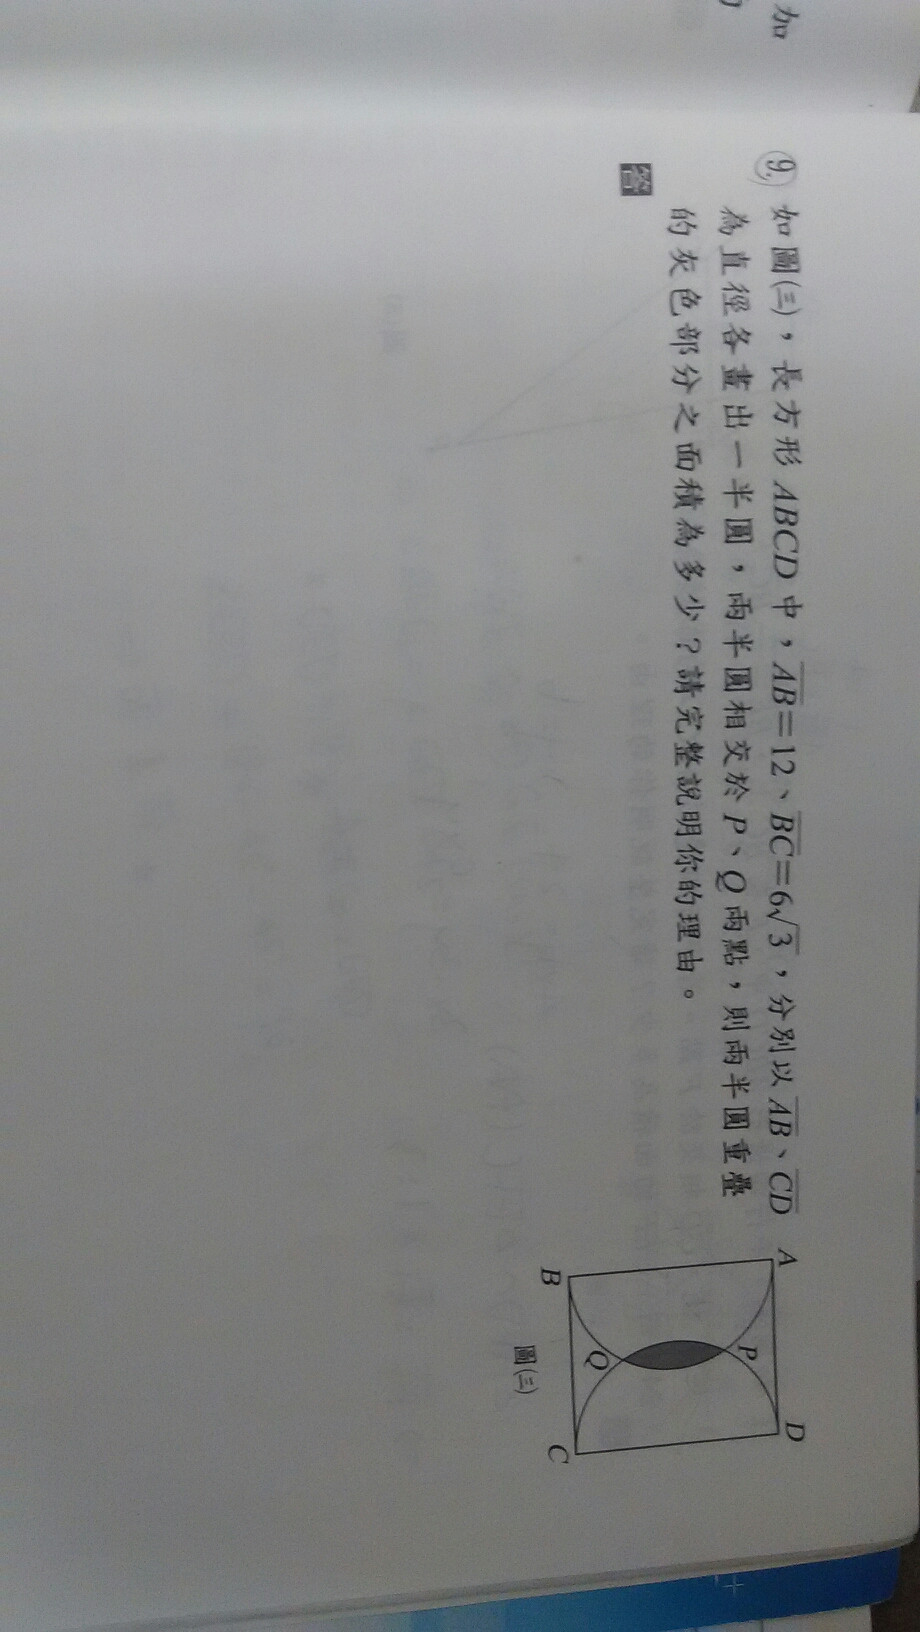 加
9. 如圖(三)，長方形 ABCD 中，AB=12、BC=6√3，分別以 AB、CD
為直徑各畫出一半圓，兩半圓相交於 P、Q 兩點，則兩半圓重疊
的灰色部分之面積為多少？請完整說明你的理由。
答
A
D
P
B
Q
C
圖(三)